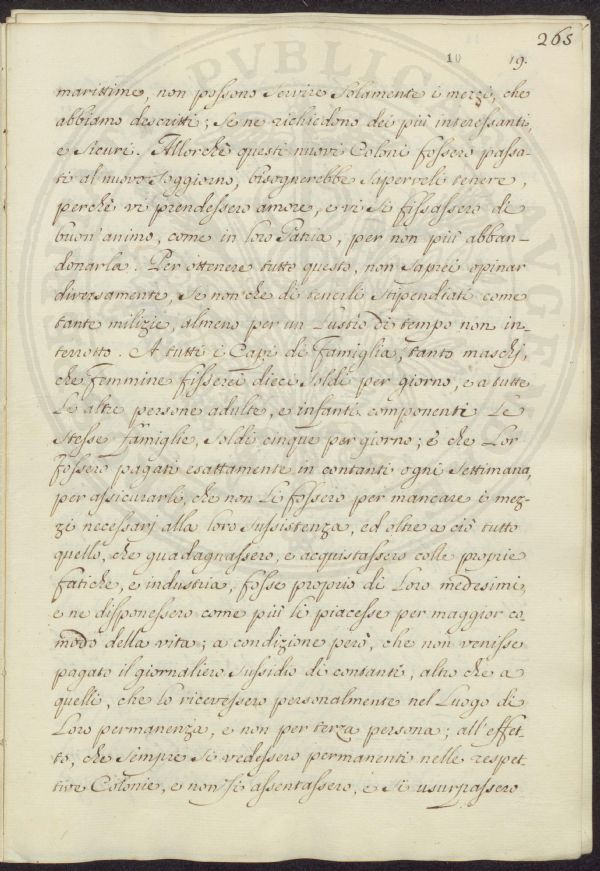 265
10 19.
marittime, non possono servire solamente i mezzi, che
abbiamo descritti; se ne richiedono dei più interessanti,
e sicuri. Allorchè questi nuovi Coloni fossero passa-
ti al nuovo soggiorno, bisognerebbe saperveli tenere,
perchè vi prendessero amore, e vi si fissassero di
buon'animo, come in loro Patria, per non più abban-
donarla. Per ottenere tutto questo, non saprei opinar
diversamente, se non che di tenerli stipendiati come
tante milizie, almeno per un Lustro di tempo non in-
terrotto. A tutti i Capi di Famiglia, tanto maschj,
che Femmine fisserei dieci soldi per giorno, e a tutte
le altre persone adulte, e infanti componenti le
stesse famiglie, soldi cinque per giorno; e che Lor
fossero pagati esattamente in contanti ogni settimana,
per assicurarli, che non li fossero per mancare i mez-
zi necessarj alla loro sussistenza, ed oltre a ciò tutto
quello, che guadagnassero, e acquistassero colle proprie
fatiche, e industria, fosse proprio di Loro medesimi,
e ne disponessero come più li piacesse per maggior co-
modo della vita; a condizione però, che non venisse
pagato il giornaliero sussidio di contanti, altro che a
quelli, che lo ricevessero personalmente nel Luogo di
Loro permanenza, e non per terza persona; all'effet-
to, che sempre si vedessero permanenti nelle respet-
tive Colonie, e non si assentassero, e si usurpassero